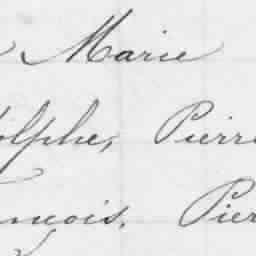 Marie
olphe, Pierr
nçois. Pier